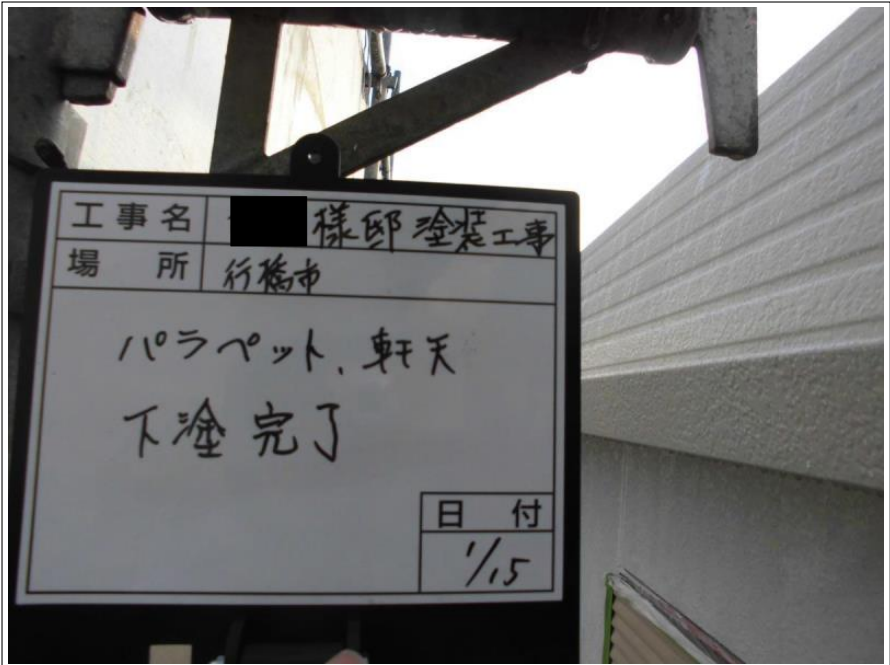 工事名 様邸塗装工事
場所 行橋市
パラペット、軒天
下塗完了
日付
1/15